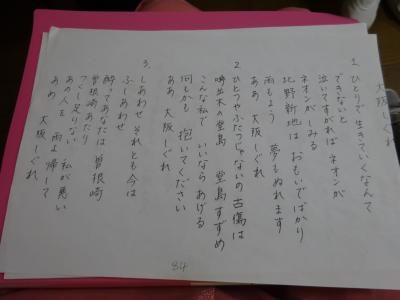 大阪しぐれ
1. ひとりで生きていくなんて
できないと
泣いてすがれば ネオンが
ネオンがしみる
北野新地は おもいでばかり
雨もよう 夢もぬれます
ああ 大阪しぐれ
2. ひとつやふたつじゃないの 古傷は
噂並木の堂島 堂島すずめ
こんな私で いいならあげる
何もかも 抱いてください
ああ 大阪しぐれ
3. しあわせ それとも今は
ふしあわせ
酔ってあなたは 曽根崎
曽根崎あたり
つくし足りない 私が悪い
あの人を 雨よ帰して
ああ 大阪しぐれ
84